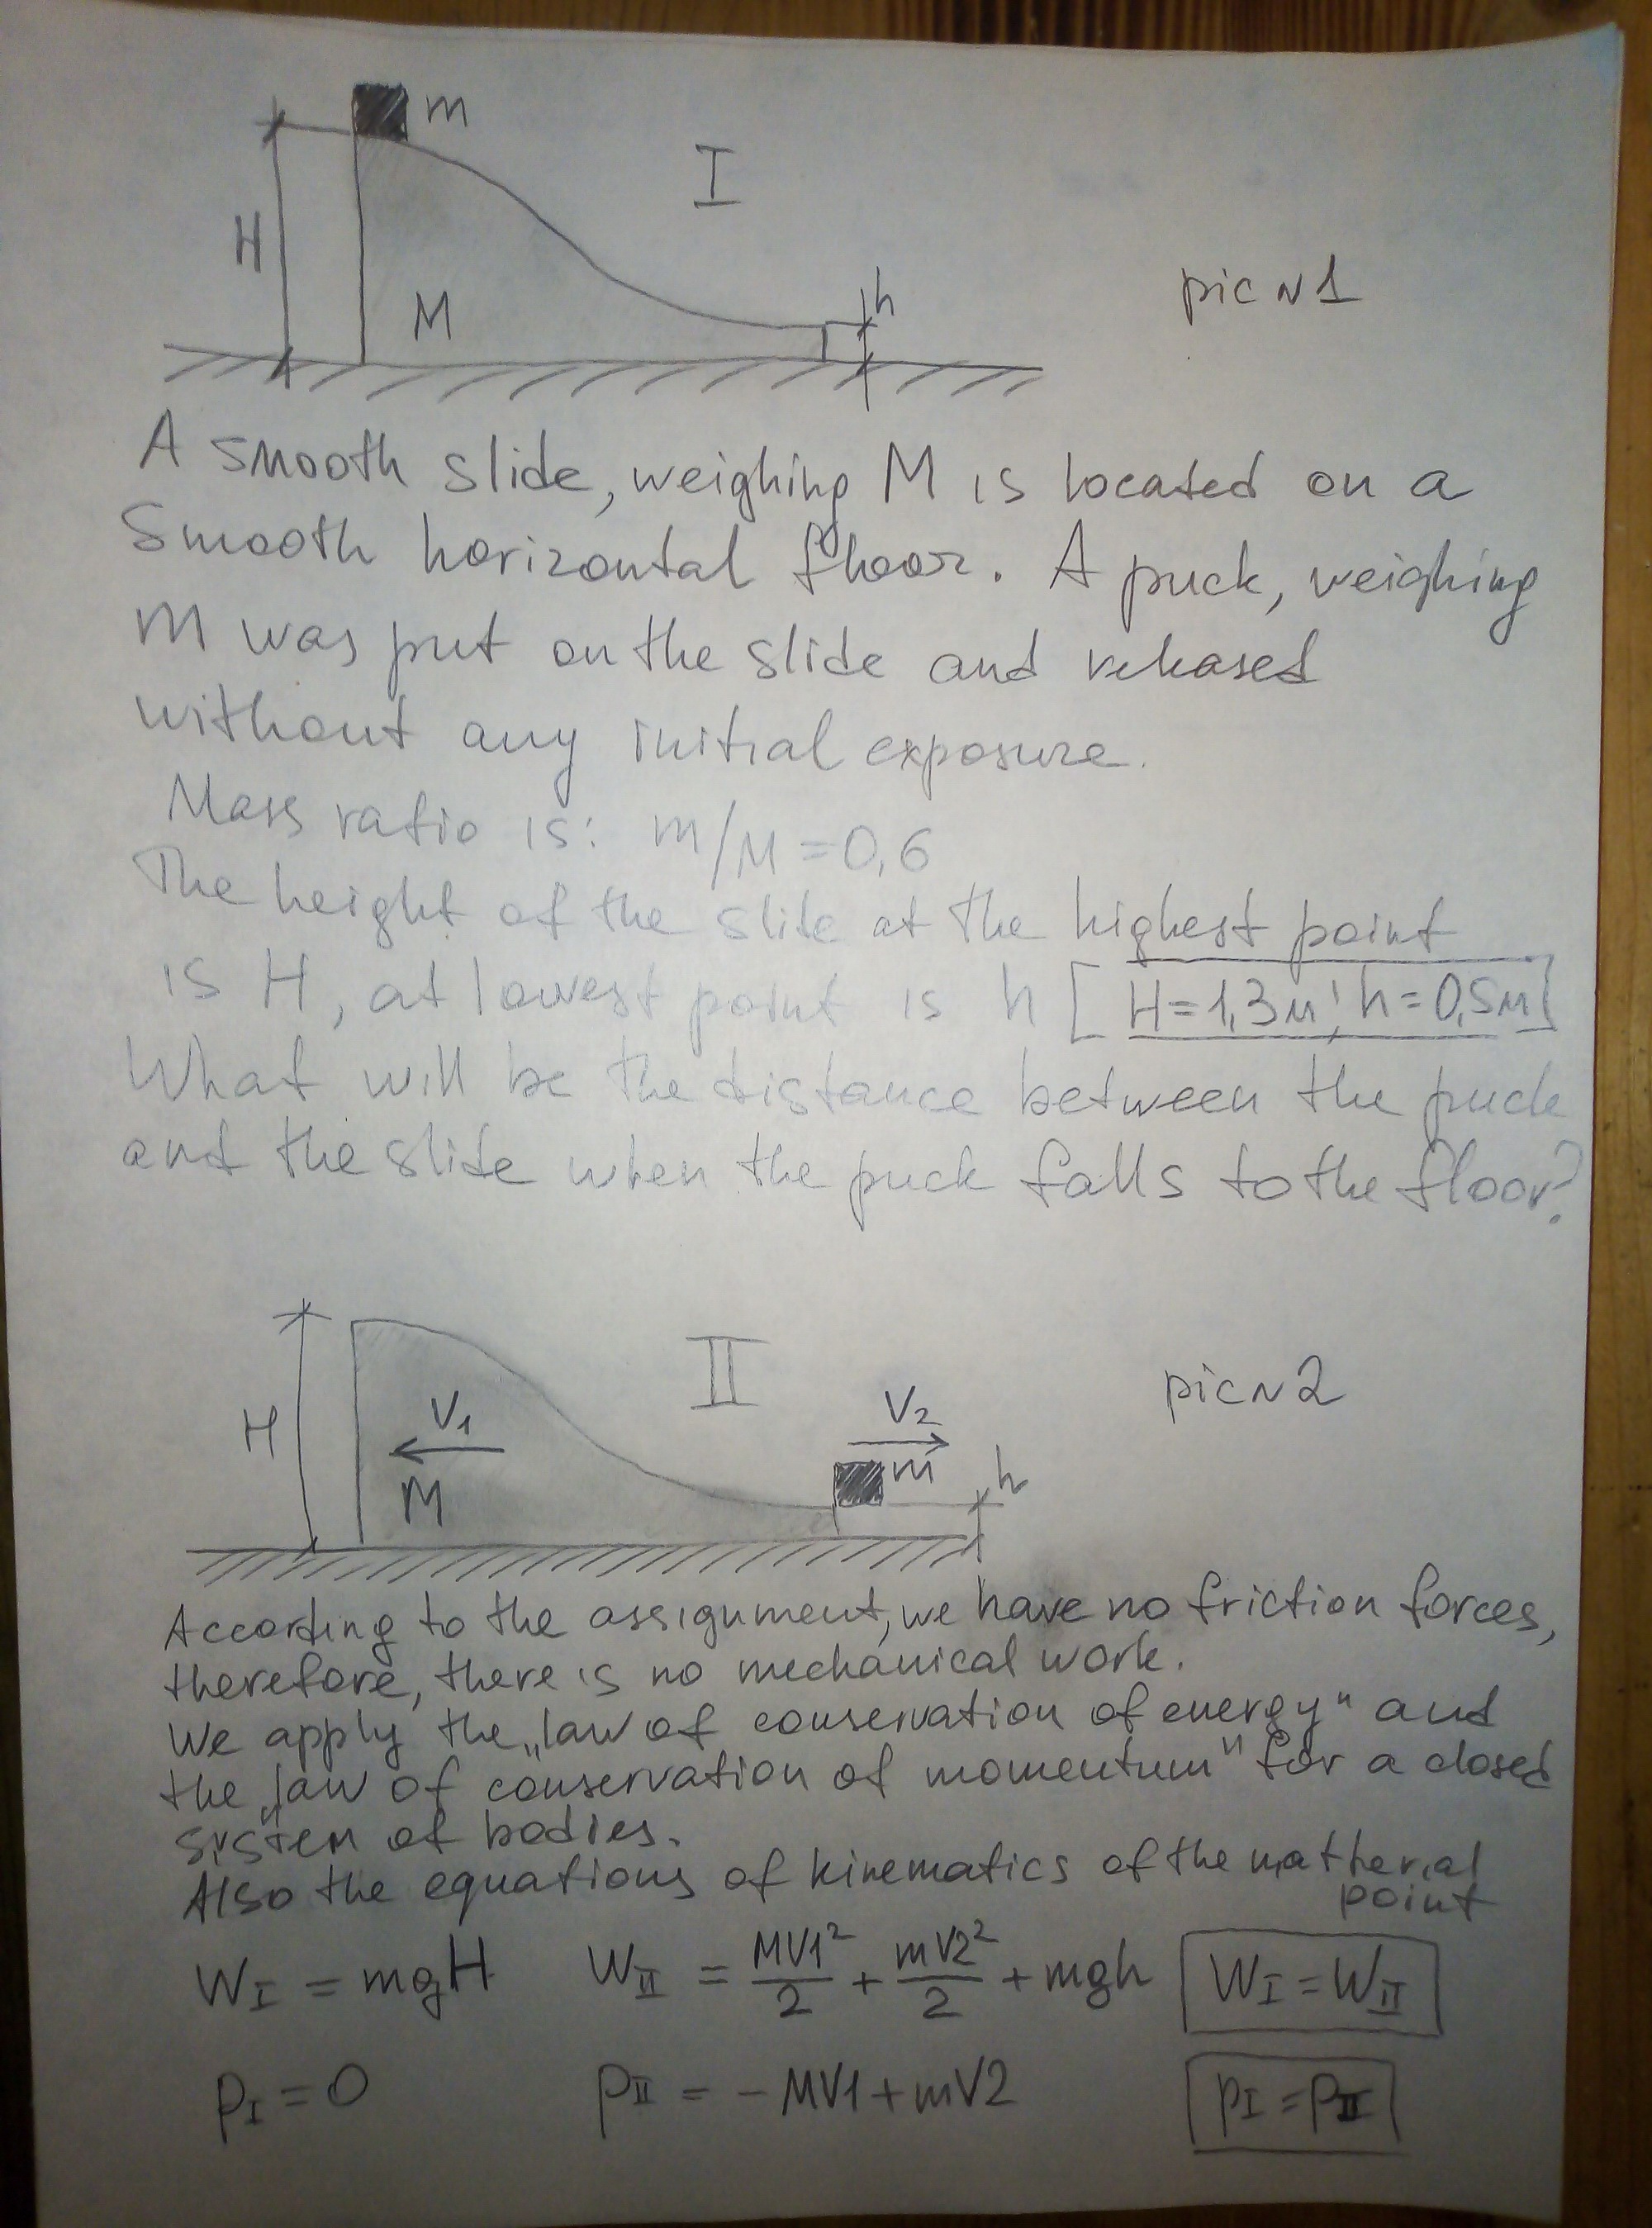 m
I
H
h
pic N1
M
A smooth slide, weighing M is located on a
smooth horizontal floor. A puck, weighing
m was put on the slide and released
without any initial exposure.
Mass ratio is: m/M=0,6
The height of the slide at the highest point
is H, at lowest point is h [H=1,3м; h=0,5м]
What will be the distance between the puck
and the slide when the puck falls to the floor?
II
pic N2
V1
V2
H
m
h
M
According to the assignment, we have no friction forces,
therefore, there is no mechanical work.
We apply the „law of conservation of energy" and
the „law of conservation of momentum" for a closed
system of bodies.
Also the equations of kinematics of the matherial
point
WI = mgH WII = MV1²/2 + mV2²/2 + mgh WI = WII
pI = 0 pII = -MV1+mV2 pI = pII